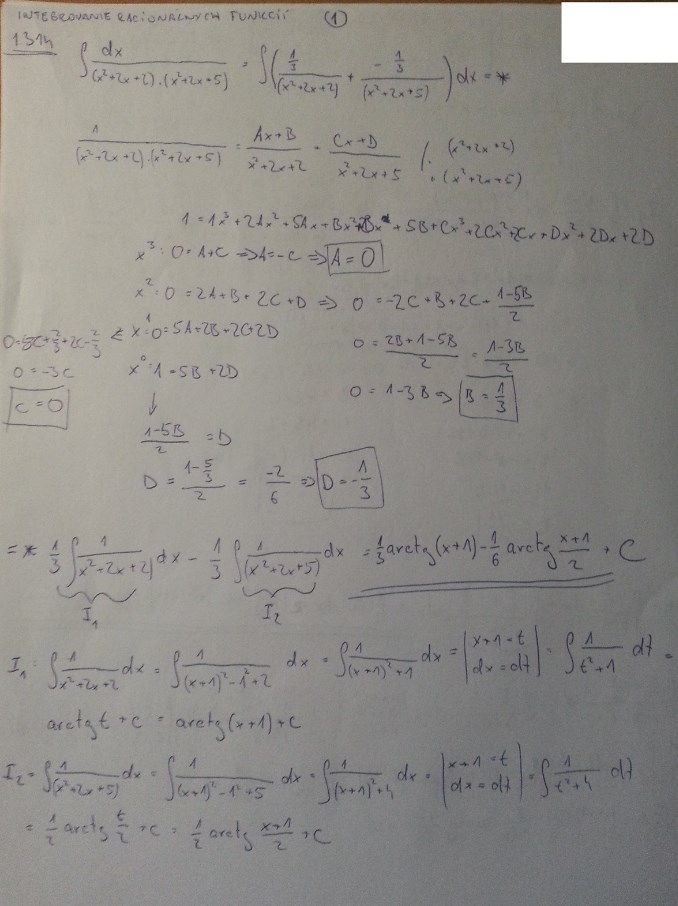 INTEGROVANIE RACIONÁLNYCH FUNKCIÍ ①
1314
∫ dx / ((x²+2x+2)·(x²+2x+5)) = ∫ ( (1/3)/(x²+2x+2) + (-1/3)/(x²+2x+5) ) dx = *
1 / ((x²+2x+2)·(x²+2x+5)) = (Ax+B)/(x²+2x+2) + (Cx+D)/(x²+2x+5) /· (x²+2x+2) ·(x²+2x+5)
1 = Ax³ + 2Ax² + 5Ax + Bx² + 2Bx + 5B + Cx³ + 2Cx² + 2Cx + Dx² + 2Dx + 2D
x³: 0 = A+C ⇒ A=-C ⇒ A=0
x²: 0 = 2A+B+2C+D ⇒ 0 = -2C+B+2C+ (1-5B)/2
x¹: 0=5A+2B+2C+2D
0 = (2B+1-5B)/2 = (1-3B)/2
0=-5C+2/3+2C-2/3 ⇐
0 = -3C
x⁰: 1 = 5B+2D
0 = 1-3B ⇒ B = 1/3
C=0
↓
(1-5B)/2 = D
D = (1-5/3)/2 = -2/6 ⇒ D = -1/3
= * 1/3 ∫ 1/(x²+2x+2) dx - 1/3 ∫ 1/(x²+2x+5) dx = 1/3 arctg(x+1) - 1/6 arctg (x+1)/2 + C
I₁ I₂
I₁: ∫ 1/(x²+2x+2) dx = ∫ 1/((x+1)²-1²+2) dx = ∫ 1/((x+1)²+1) dx = | x+1=t dx=dt | = ∫ 1/(t²+1) dt =
arctg t + C = arctg(x+1)+C
I₂ = ∫ 1/(x²+2x+5) dx = ∫ 1/((x+1)²-1²+5) dx = ∫ 1/((x+1)²+4) dx = | x+1=t dx=dt | = ∫ 1/(t²+4) dt
= 1/2 arctg t/2 + C = 1/2 arctg (x+1)/2 + C